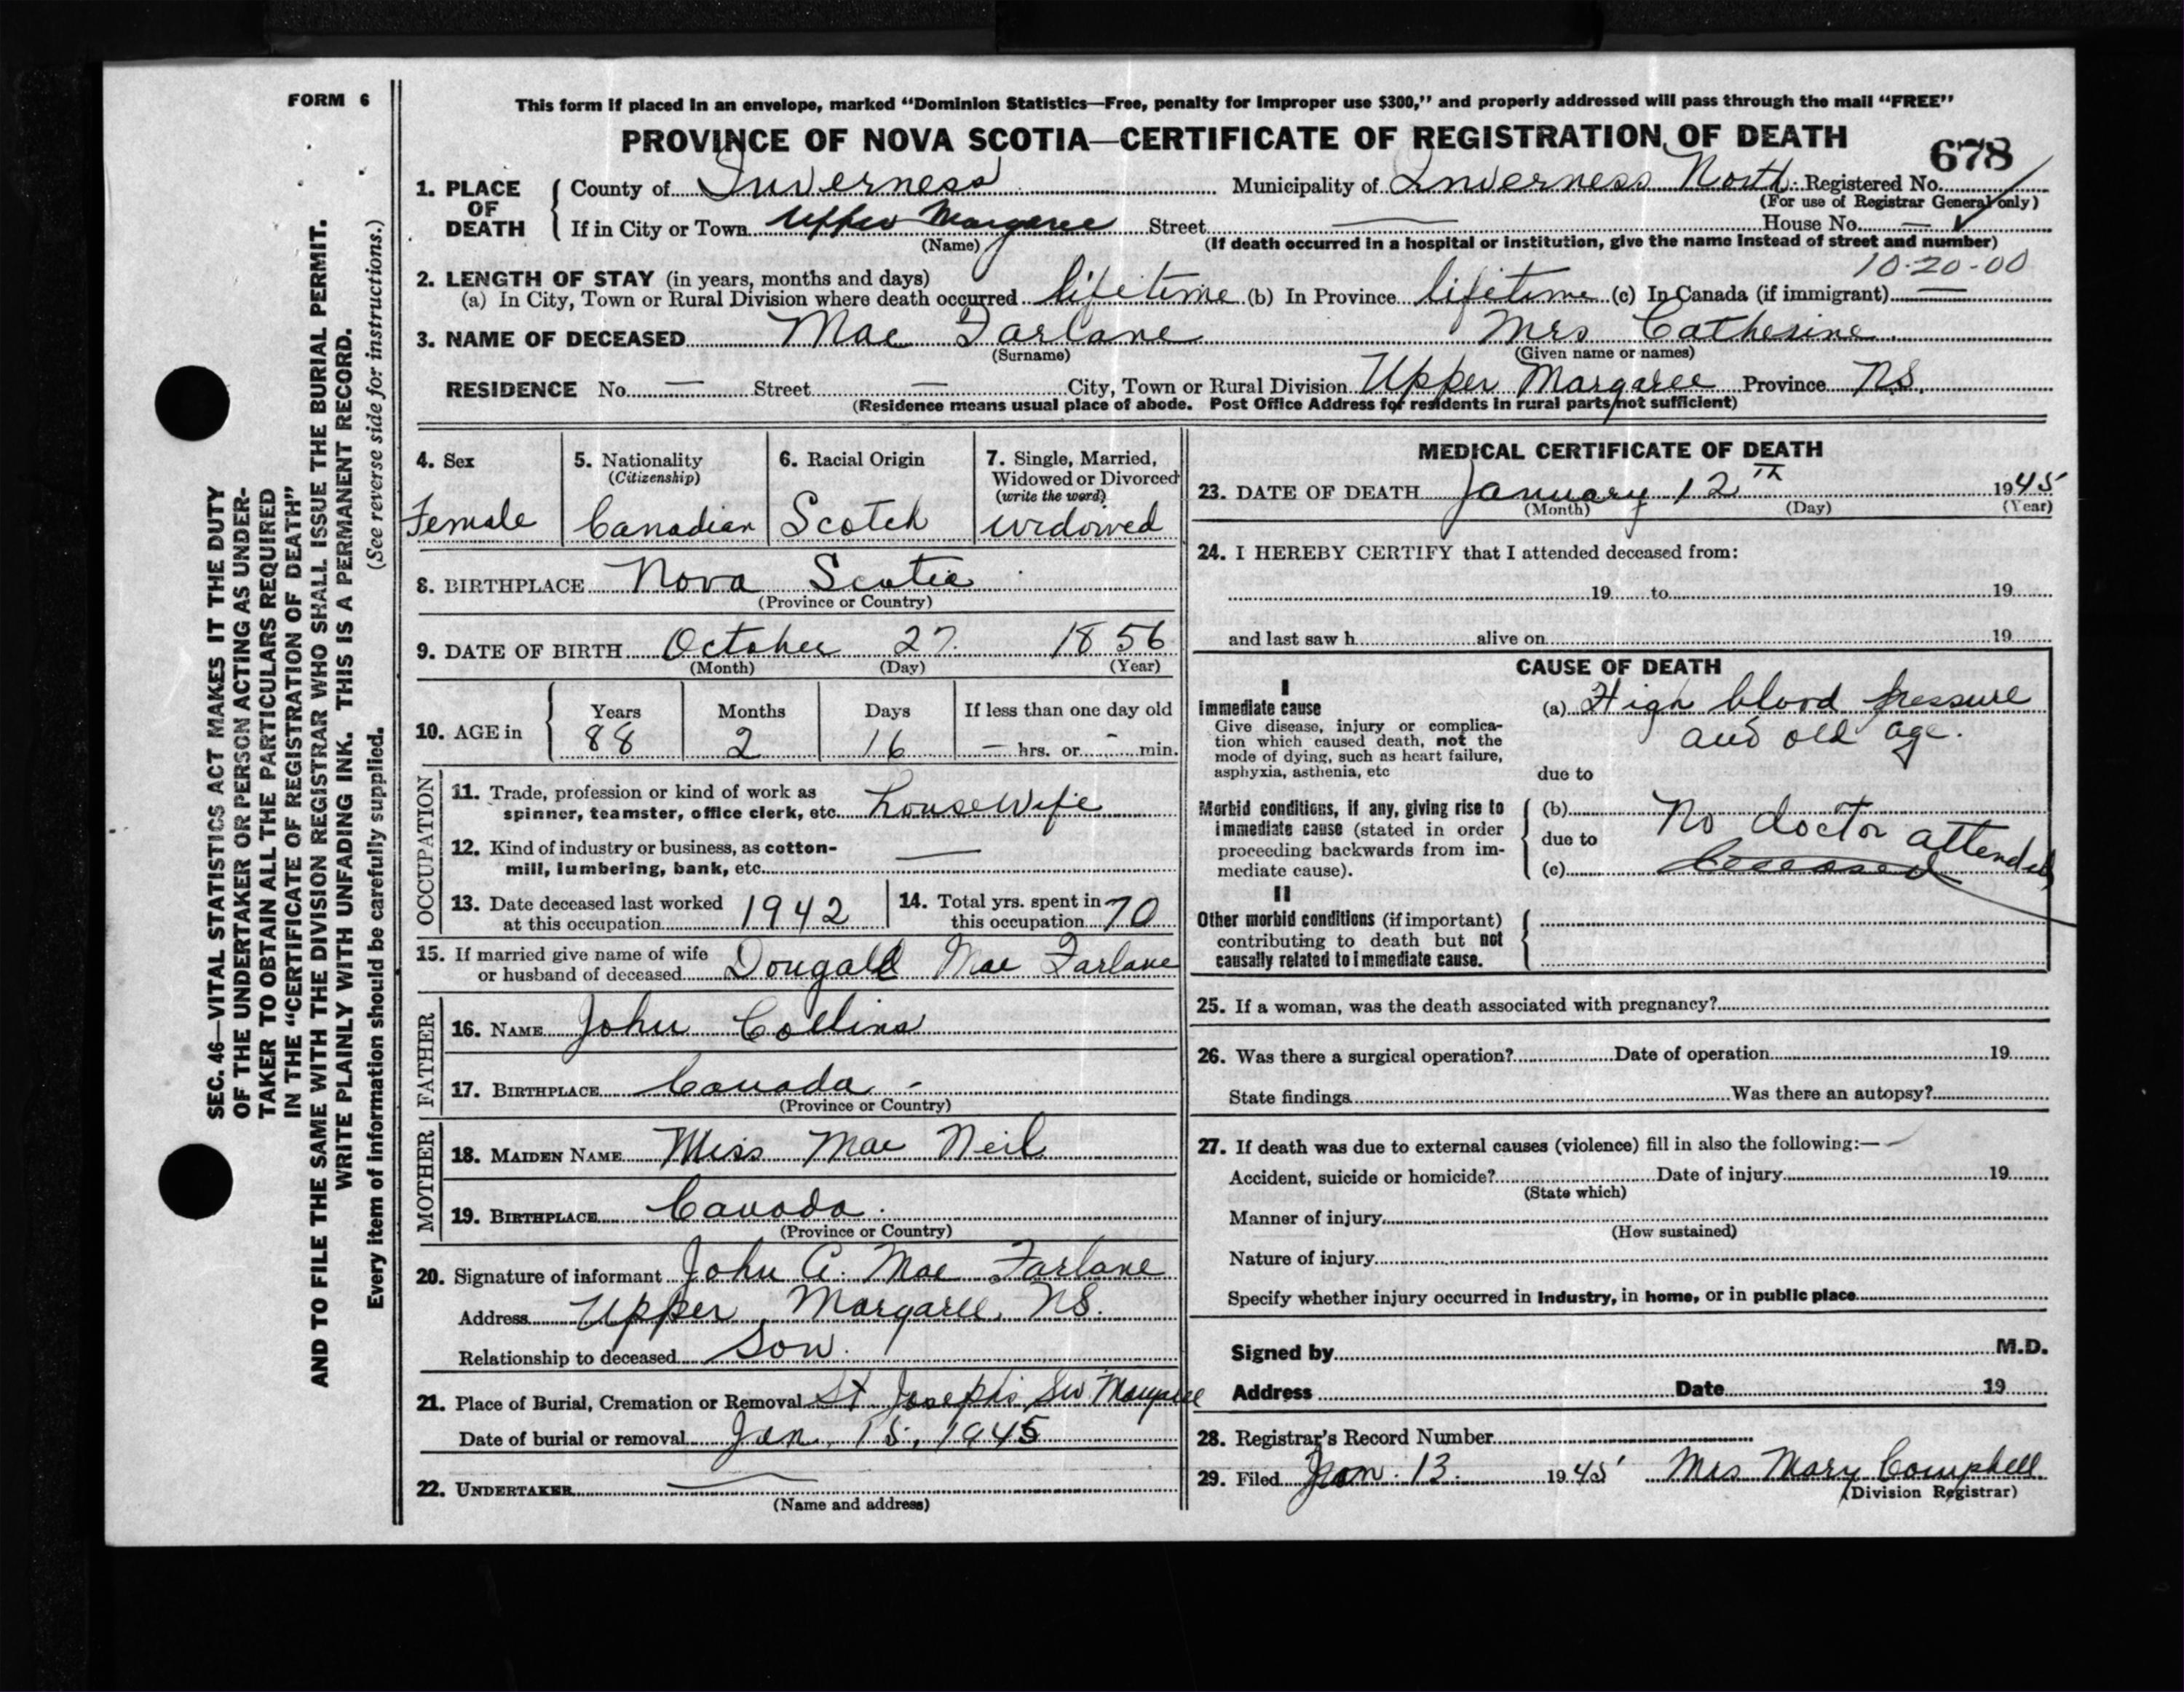 FORM 6
This form if placed in an envelope, marked “Dominion Statistics—Free, penalty for improper use $300,” and properly addressed will pass through the mail “FREE”
PROVINCE OF NOVA SCOTIA—CERTIFICATE OF REGISTRATION OF DEATH
678
1. PLACE OF DEATH { County of Inverness Municipality of Inverness North Registered No.
(For use of Registrar General only)
If in City or Town Upper Margaree Street — House No. —
(Name) (If death occurred in a hospital or institution, give the name instead of street and number)
10-20-00
2. LENGTH OF STAY (in years, months and days)
(a) In City, Town or Rural Division where death occurred lifetime (b) In Province lifetime (c) In Canada (if immigrant) —
3. NAME OF DECEASED Mac Farlane Mrs Catherine
(Surname) (Given name or names)
RESIDENCE No. — Street — City, Town or Rural Division Upper Margaree Province NS.
(Residence means usual place of abode. Post Office Address for residents in rural parts not sufficient)
4. Sex
Female
5. Nationality
(Citizenship)
Canadian
6. Racial Origin
Scotch
7. Single, Married,
Widowed or Divorced
(write the word)
widowed
8. BIRTHPLACE Nova Scotia
(Province or Country)
9. DATE OF BIRTH October 27. 1856
(Month) (Day) (Year)
10. AGE in { Years Months Days If less than one day old
88 2 16 — hrs. or - min.
OCCUPATION
11. Trade, profession or kind of work as
spinner, teamster, office clerk, etc. housewife
12. Kind of industry or business, as cotton-
mill, lumbering, bank, etc. —
13. Date deceased last worked
at this occupation 1942
14. Total yrs. spent in
this occupation 70
15. If married give name of wife
or husband of deceased Dougald Mac Farlane
FATHER
16. NAME John Collins
17. BIRTHPLACE Canada -
(Province or Country)
MOTHER
18. MAIDEN NAME Miss Mac Neil
19. BIRTHPLACE Canada.
(Province or Country)
20. Signature of informant John A. Mac Farlane
Address Upper Margaree. NS.
Relationship to deceased Son.
21. Place of Burial, Cremation or Removal St Joseph's SW Margaree
Date of burial or removal Jan. 15, 1945
22. UNDERTAKER —
(Name and address)
MEDICAL CERTIFICATE OF DEATH
23. DATE OF DEATH January 12th 1945
(Month) (Day) (Year)
24. I HEREBY CERTIFY that I attended deceased from:
19 to 19
and last saw h alive on 19
CAUSE OF DEATH
I
Immediate cause
Give disease, injury or complica-
tion which caused death, not the
mode of dying, such as heart failure,
asphyxia, asthenia, etc
(a) High blood pressure
and old age.
due to
Morbid conditions, if any, giving rise to
immediate cause (stated in order
proceeding backwards from im-
mediate cause).
(b) No doctor attended
due to
(c) deceased
II
Other morbid conditions (if important)
contributing to death but not
causally related to immediate cause.
25. If a woman, was the death associated with pregnancy?
26. Was there a surgical operation? Date of operation 19
State findings Was there an autopsy?
27. If death was due to external causes (violence) fill in also the following:—
Accident, suicide or homicide? Date of injury 19
(State which)
Manner of injury
(How sustained)
Nature of injury
Specify whether injury occurred in industry, in home, or in public place
Signed by M.D.
Address Date 19
28. Registrar's Record Number
29. Filed Jan. 13. 1945 Mrs Mary Campbell
(Division Registrar)
SEC. 46—VITAL STATISTICS ACT MAKES IT THE DUTY
OF THE UNDERTAKER OR PERSON ACTING AS UNDER-
TAKER TO OBTAIN ALL THE PARTICULARS REQUIRED
IN THE “CERTIFICATE OF REGISTRATION OF DEATH”
AND TO FILE THE SAME WITH THE DIVISION REGISTRAR WHO SHALL ISSUE THE BURIAL PERMIT.
WRITE PLAINLY WITH UNFADING INK. THIS IS A PERMANENT RECORD.
Every item of information should be carefully supplied. (See reverse side for instructions.)